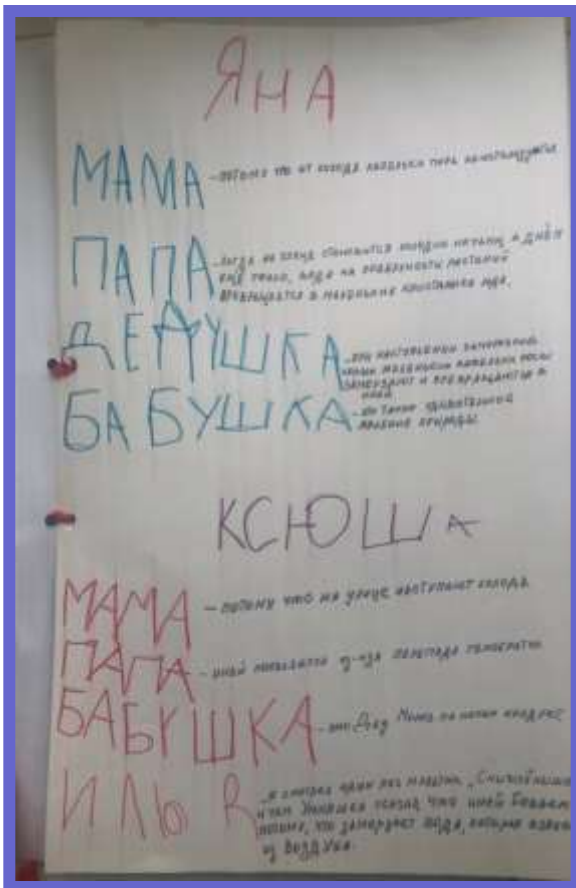 ЯНА
МАМА - потому что от холода капельки пара кристаллизуются
ПАПА - когда на улице становится холодно ночью, а днём
ещё тепло, вода на поверхности растений
превращается в маленькие кристаллики льда.
ДЕДУШКА - при наступлении заморозков
маленькие капельки росы
замерзают и превращаются в
иней
БАБУШКА - это такое удивительное
явление природы
КСЮША
МАМА - потому что на улице наступают холода
ПАПА - иней появляется из-за перепада температур
БАБУШКА - это Дед Мороз
ИЛЬЯ - я смотрел один раз мультик
что иней бывает
потому, что замерзает вода, которая
из воздуха.